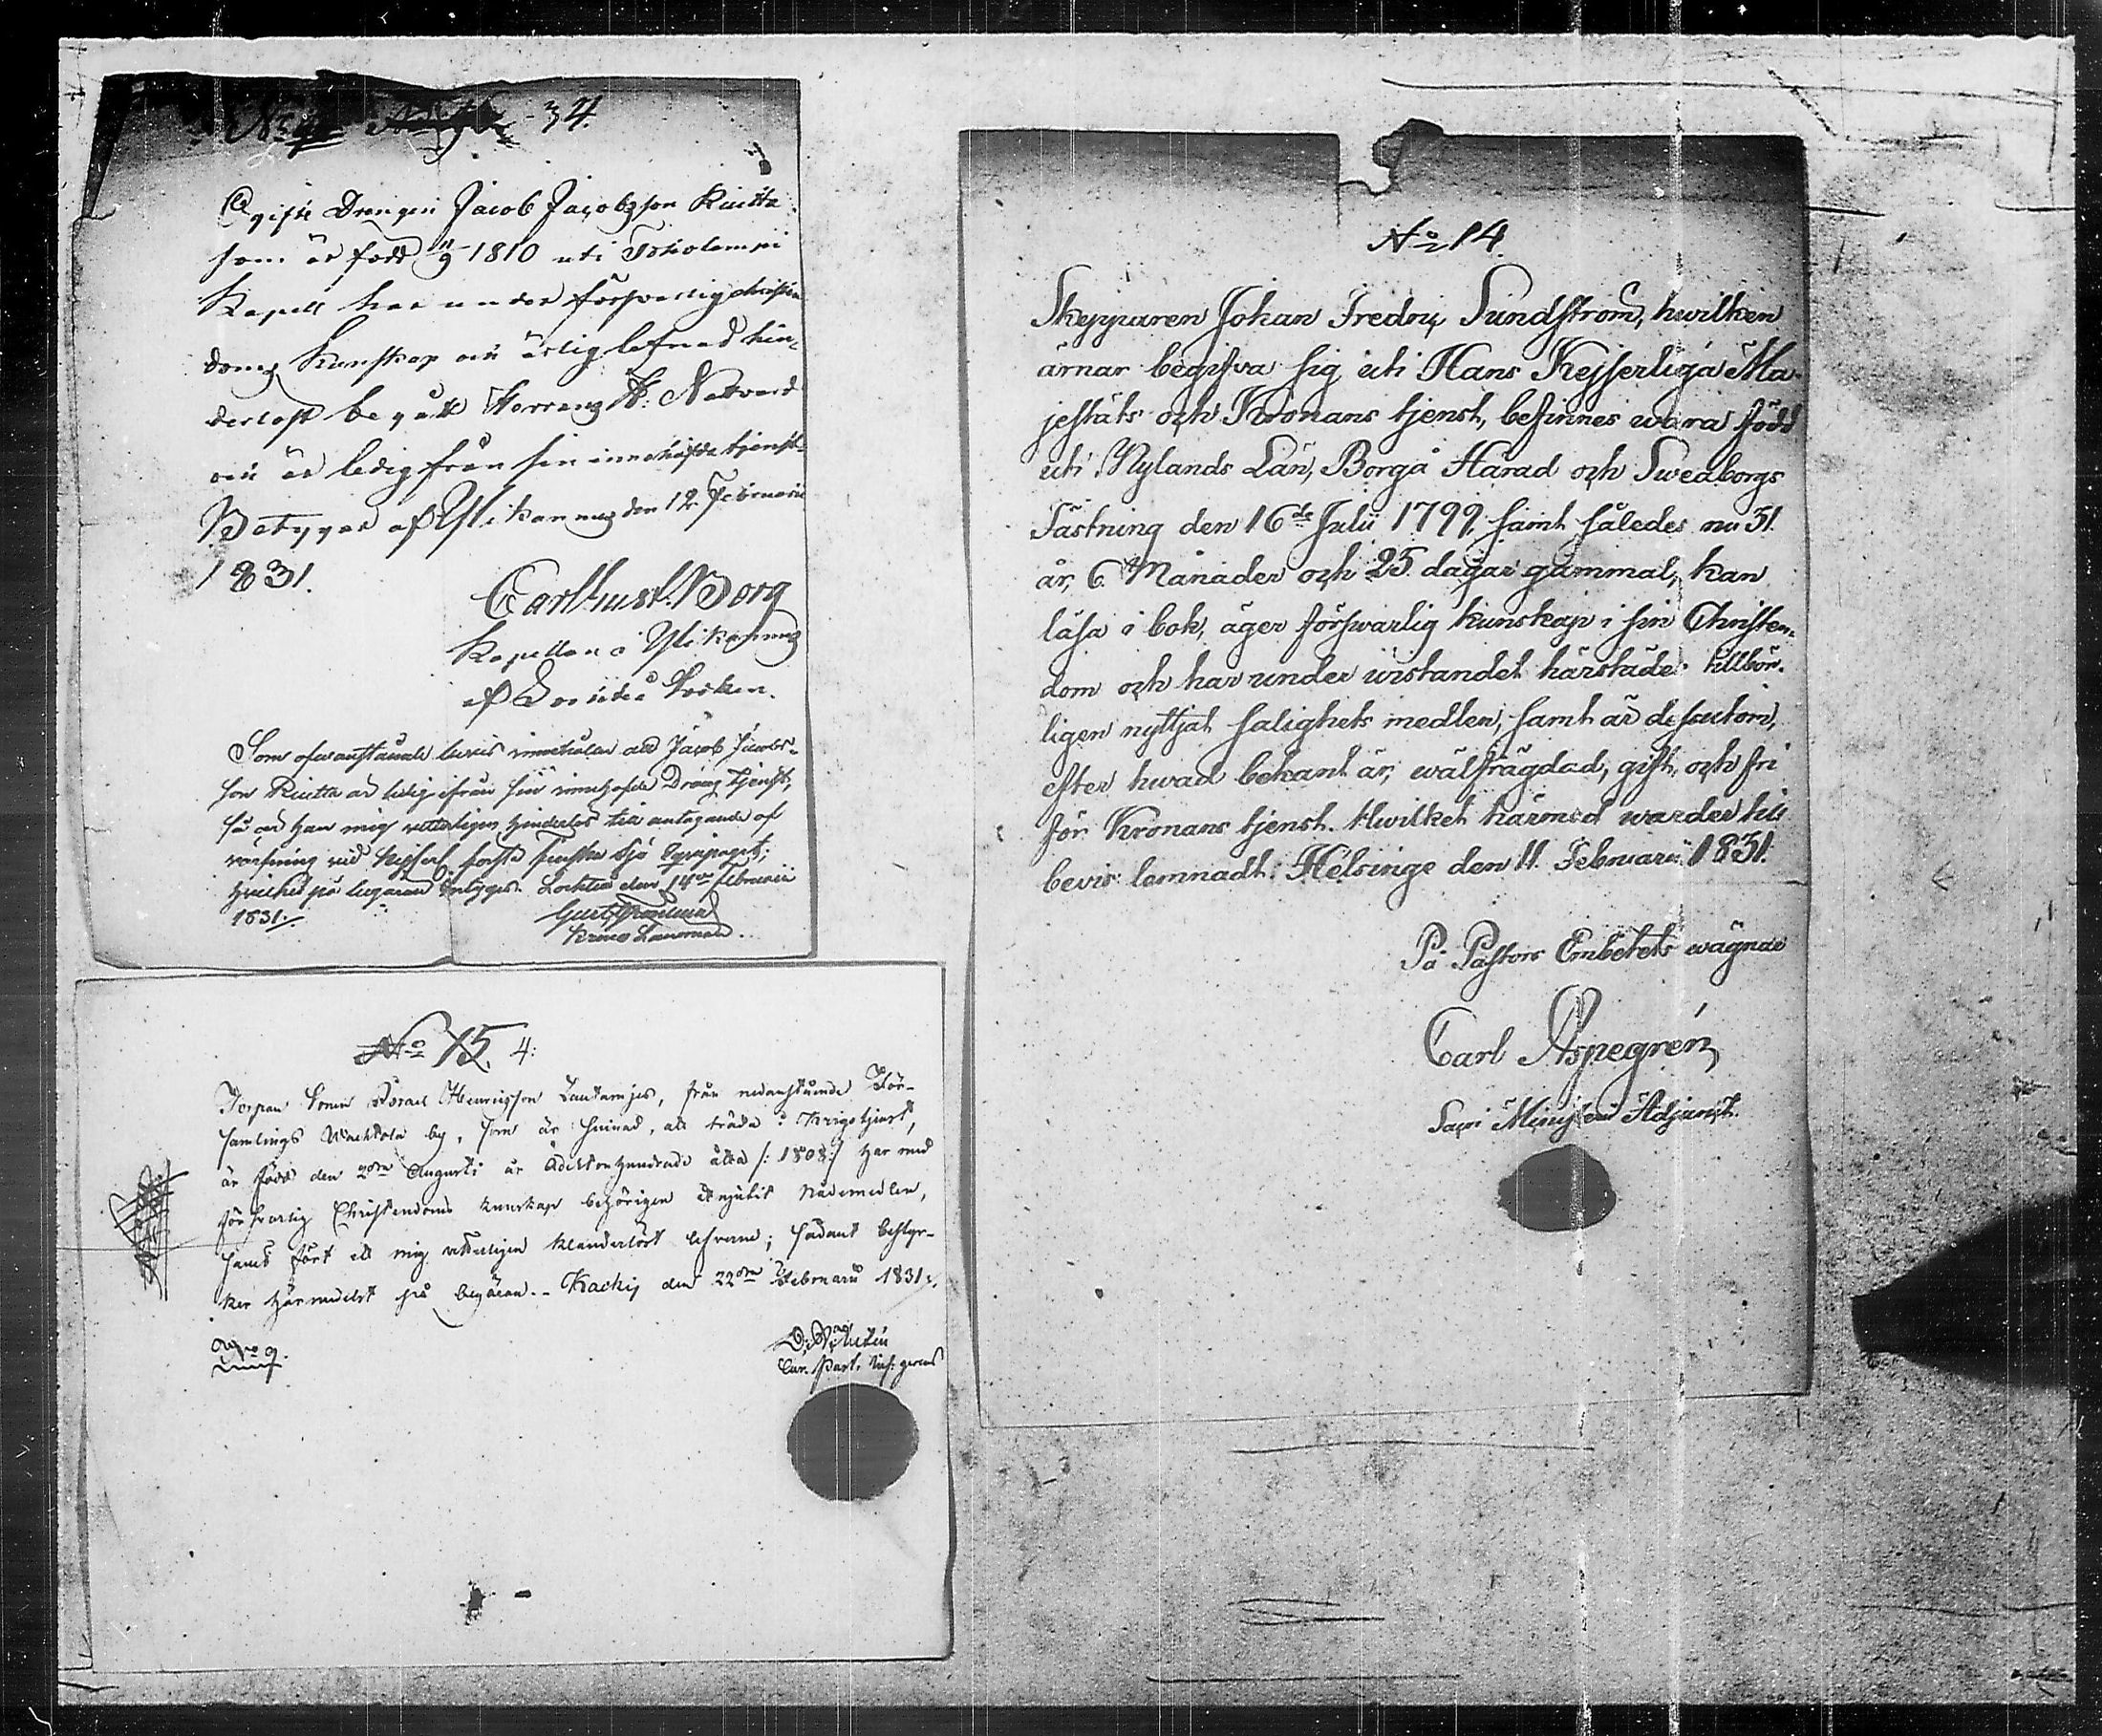 34.
Ogifte Drengen Jacob Jacobsson Kuitta
som är född 1810 uti Toholampi
Kapell har under försvarlig christen
doms kunskap och ärlig lefnad hin-
derlöst begått Herrans H: Nattvard
och är ledig från sin innehafda tjenst
Betygar af Ylikannus den 12 Februarii
1831.
Carl Gust. Borg
Kapellan i Ylikannus
af Lochteå Socken.
Som ofvanstående bevis innehåller att Jacob Jacobs-
son Kuitta är ledig ifrån sin innehafde Dräng tjenst,
så är han mig vetterligen hinderlös till antagande af
värfning vid Kejserl första Finska Sjö Equipaget;
hvilket på begäran betygas. Lochteå den 14de Februarii
1831.
Krono Länsman.
No 15. 4:
Torpare Sonen Israel Henricsson Lautamjes, från nedanstående För-
samlings Wachtola by, som är sinnad, att träda i Krigstjenst,
är född den 2dra Augusti år Adertonhundrade åtta /: 1808:/ har med
försvarlig Christendoms kunskap behörigen åtnjutit Nådemedlen,
samt fört ett mig vetterligen klanderlöst lefverne; sådant bestyr-
ker härmedelst på begäran. - Kackij den 22dra Februarii 1831.
Cur. Past. Vic: gerens
No 14.
Skepparen Johan Fredric Sundström, hwilken
ärnar begifva sig uti Hans Kejserliga Ma-
jestäts och Kronans tjenst, befinnes wara född
uti Nylands Län, Borgå Härad och Sweaborgs
Fästning den 16de Julii 1799, samt således nu 31.
år, 6 Månader och 25. dagar gammal, kan
läsa i bok, äger förswarlig kunskap i sin Christen-
dom och har under wistandet härstädes tillbör-
ligen nyttjat salighets medlen, samt är dessutom,
efter hwad bekant är, wälfrägdad, gift, och fri
för Kronans tjenst. Hwilket härmed warder till
bevis lemnadt. Helsinge den 11. Februarii 1831.
På Pastors Embetets wägnar
Carl Aspegrén
Sacri Minist: Adjunct.